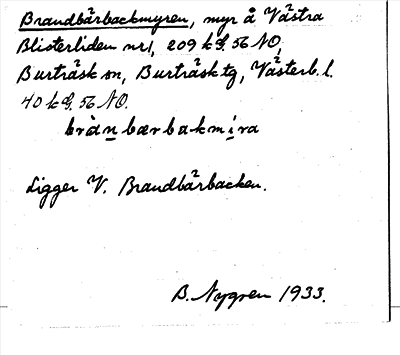 Brandbärbackmyren, myr å Västra
Blisterliden nr 1, 209 k S. 56 NO,
Burträsk sn, Burträsk tg, Västerb. l.
40 k S. 56 NO.
brànbærbakmira
Ligger V. Brandbärbacken.
B. Nygren 1933.